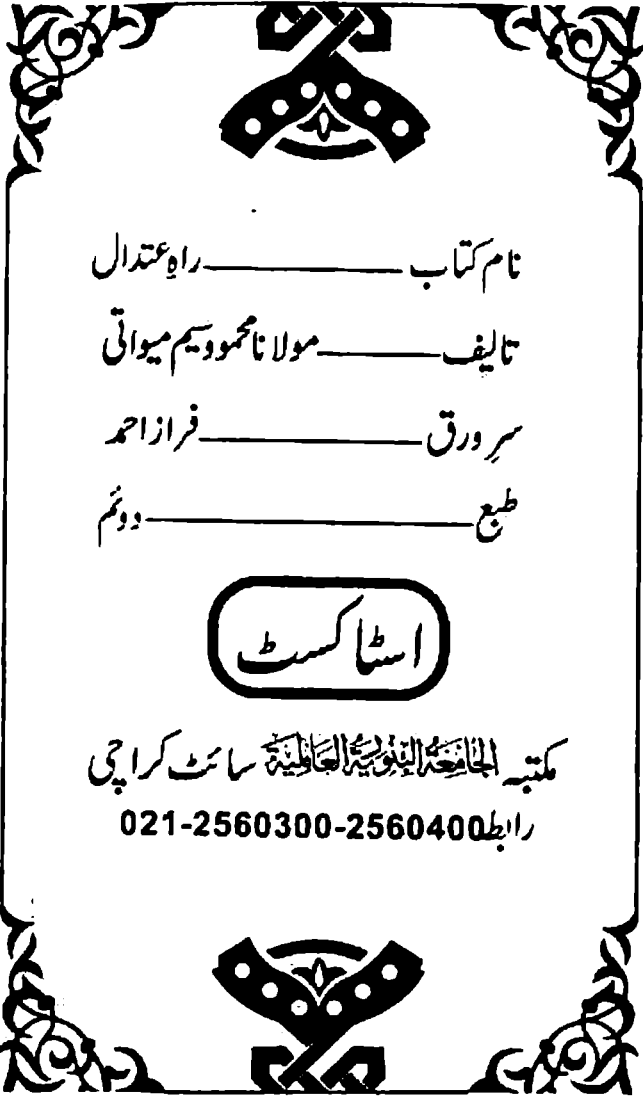 نام کتاب ــــــــــــــــ راہِ عتدال
تالیف ــــــــــــــــ مولانا محمود وسیم میواتی
سرِ ورق ــــــــــــــــ فراز احمد
طبع ــــــــــــــــ دوئم
اسٹاکسٹ
مکتبہ الجَامِعَۃُ البِنُورِیَۃُ العَالَمِیَۃ سائٹ کراچی
رابطہ 021-2560300-2560400